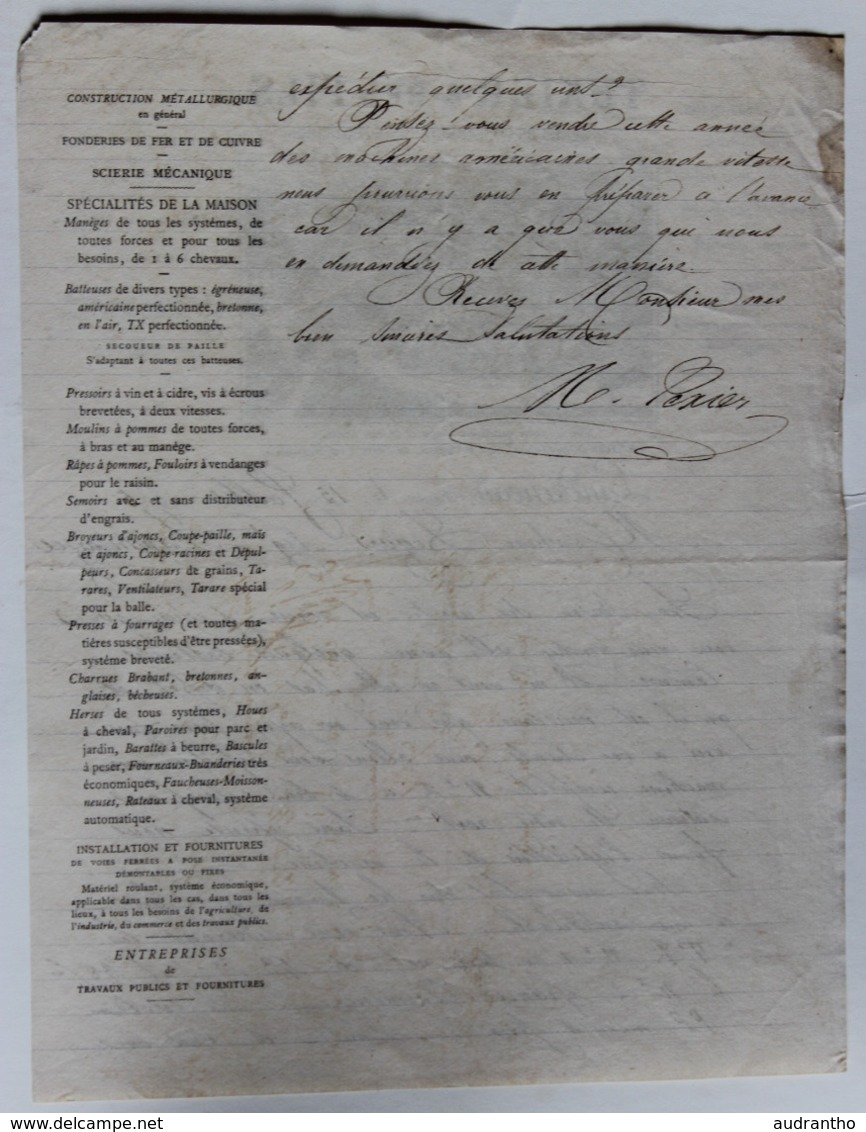 CONSTRUCTION MÉTALLURGIQUE
en général
FONDERIES DE FER ET DE CUIVRE
SCIERIE MÉCANIQUE
SPÉCIALITÉS DE LA MAISON
Manèges de tous les systèmes, de
toutes forces et pour tous les
besoins, de 1 à 6 chevaux.
Batteuses de divers types : égréneuse,
américaine perfectionnée, bretonne,
en l'air, TX perfectionnée.
SECOUEUR DE PAILLE
S'adaptant à toutes ces batteuses.
Pressoirs à vin et à cidre, vis à écrous
brevetées, à deux vitesses.
Moulins à pommes de toutes forces,
à bras et au manége.
Râpes à pommes, Fouloirs à vendanges
pour le raisin.
Semoirs avec et sans distributeur
d'engrais.
Broyeurs d'ajoncs, Coupe-paille, maïs
et ajoncs, Coupe-racines et Dépul-
peurs, Concasseurs de grains, Ta-
rares, Ventilateurs, Tarare spécial
pour la balle.
Presses à fourrages (et toutes ma-
tières susceptibles d'être pressées),
système breveté.
Charrues Brabant, bretonnes, an-
glaises, bécheuses.
Herses de tous systèmes, Houes
à cheval, Paroires pour parc et
jardin, Barattes à beurre, Bascules
à peser, Fourneaux-Buanderies très
économiques, Faucheuses-Moisson-
neuses, Rateaux à cheval, système
automatique.
INSTALLATION ET FOURNITURES
DE VOIES FERRÉES A POSE INSTANTANÉE
DÉMONTABLES OU FIXES
Matériel roulant, système économique,
applicable dans tous les cas, dans tous les
lieux, à tous les besoins de l'agriculture, de
l'industrie, du commerce et des travaux publics.
ENTREPRISES
de
TRAVAUX PUBLICS ET FOURNITURES
expédier quelques uns ?
Pensez-vous vendre cette année
des machines américaines grande vitesse
nous pourrions vous en préparer à l'avance
car il n'y a que vous qui nous
en demandez de cette manière.
Recevez Monsieur mes
bien sincères salutations
M. Texier
audrantho
delcampe.net